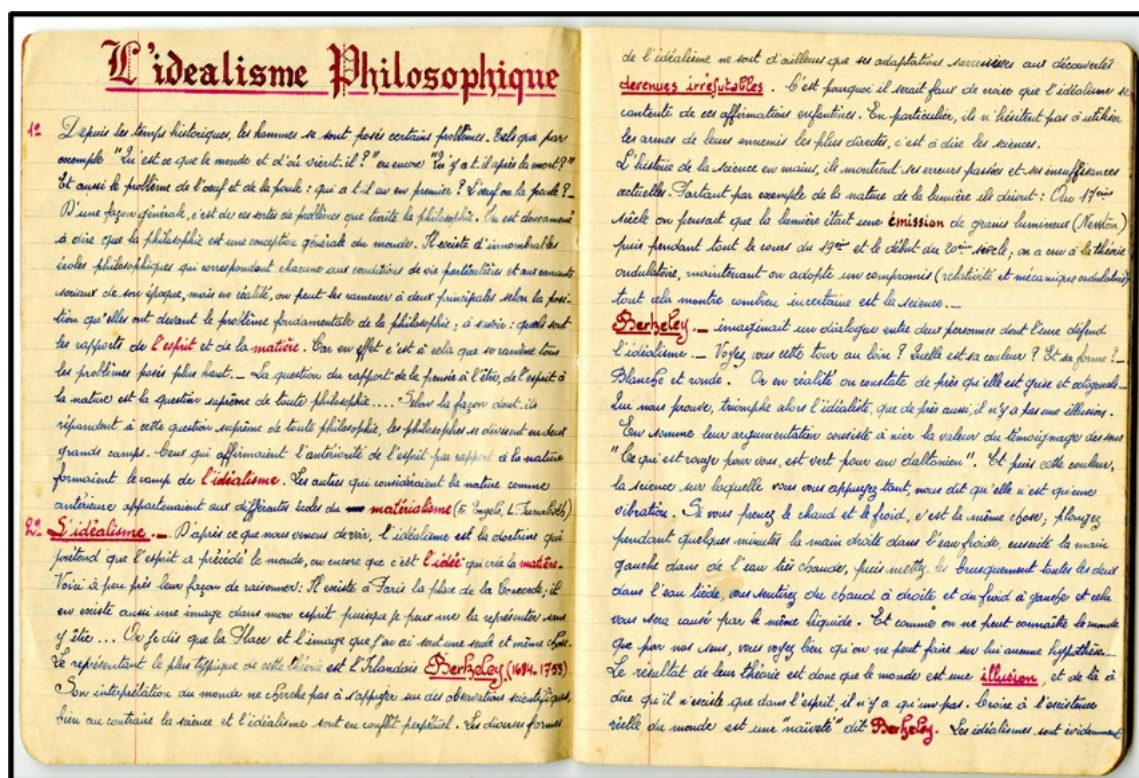 L'idealisme Philosophique
1º Depuis les temps historiques, les hommes se sont posés certains problèmes. Tels que par
exemple "Qu'est ce que le monde et d'où vient-il ?" ou encore "Qu'y a t-il après la mort ?"
Et aussi le problème de l'oeuf et de la poule : qui a t il eu en premier ? L'oeuf ou la poule ? _
D'une façon générale, c'est de ces sortes de problèmes que traite la philosophie. On est donc amené
à dire que la philosophie est une conception générale du monde. Il existe d'innombrables
écoles philosophiques qui correspondent chacune aux conditions de vie particulières et aux courants
sociaux de son époque, mais en réalité, on peut les ramener à deux principales selon la posi-
tion qu'elles ont devant le problème fondamentale de la philosophie ; à savoir : quels sont
les rapports de l'esprit et de la matière. Car en effet c'est à cela que se ramène tous
les problèmes posés plus haut. _ La question du rapport de la pensée à l'être, de l'esprit à
la nature est la question suprême de toute philosophie.... Selon la façon dont ils
répondent à cette question suprême de toute philosophie, les philosophes se divisent en deux
grands camps. Ceux qui affirmaient l'antériorité de l'esprit par rapport à la nature
formaient le camp de l'idéalisme. Les autres qui considéraient la nature comme
antérieure appartenaient aux différentes écoles du matérialisme (F. Engels, L.
2º L'idéalisme. _ D'après ce que nous venons de voir, l'idéalisme est la doctrine qui
prétend que l'esprit a précédé le monde, ou encore que c'est l'idée qui crée la matière.
Voici à peu près leur façon de raisonner : Il existe à Paris la place de la Concorde ; il
en existe aussi une image dans mon esprit puisque je peux me la représenter sans
y être ... Or je dis que la Place et l'image que j'en ai sont une seule et même chose.
Le représentant le plus typique de cette théorie est l'Irlandais Berkeley (1684.1753)
Son interprétation du monde ne cherche pas à s'appuyer sur des observations scientifiques,
bien au contraire la science et l'idéalisme sont en conflit perpétuel. Les diverses formes
de l'idéalisme ne sont d'ailleurs que ses adaptations successives aux découvertes
devenues irréfutables. C'est pourquoi il serait faux de croire que l'idéalisme se
contente de ces affirmations enfantines. En particulier, ils n'hésitent pas à utiliser
les armes de leurs ennemis les plus directes, c'est à dire les sciences.
L'histoire de la science en mains, ils montrent ses erreurs passées et ses insuffisances
actuelles. Partant par exemple de la nature de la lumière ils disent : Au 17ème
siècle on pensait que la lumière était une émission de grains lumineux (Newton)
puis pendant tout le cours du 19ème et le début du 20ème siècle, on a cru à la théorie
ondulatoire, maintenant on adopte un compromis (relativité et mécanique ondulatoire)
tout cela montre combien incertaine est la science. _
Berkeley. _ imaginait un dialogue entre deux personnes dont l'une défend
l'idéalisme. _ Voyez vous cette tour au loin ? Quelle est sa couleur ? Et sa forme ? _
Blanche et ronde. Or en réalité on constate de près qu'elle est grise et octogonale _
Que nous prouve, triomphe alors l'idéaliste, que de près aussi, il n'y a pas une illusion.
En somme leur argumentation consiste à nier la valeur du témoignage des sens
"Ce qui est rouge pour vous, est vert pour un daltonien". Et puis cette couleur,
la science sur laquelle vous vous appuyez tant, nous dit qu'elle n'est qu'une
vibration. Si vous prenez le chaud et le froid, c'est la même chose ; plongez
pendant quelques minutes la main droite dans l'eau froide, ensuite la main
gauche dans de l'eau très chaude, puis mettez les brusquement toutes les deux
dans l'eau tiède, vous sentirez du chaud à droite et du froid à gauche et cela
vous sera causé par le même liquide. Et comme on ne peut connaître le monde
que par nos sens, vous voyez bien qu'on ne peut faire sur lui aucune hypothèse. _
Le résultat de leur théorie est donc que le monde est une illusion, et de là à
dire qu'il n'existe que dans l'esprit, il n'y a qu'un pas. Croire à l'existence
réelle du monde est une "naïveté" dit Berkeley. Les idéalismes sont évidemment